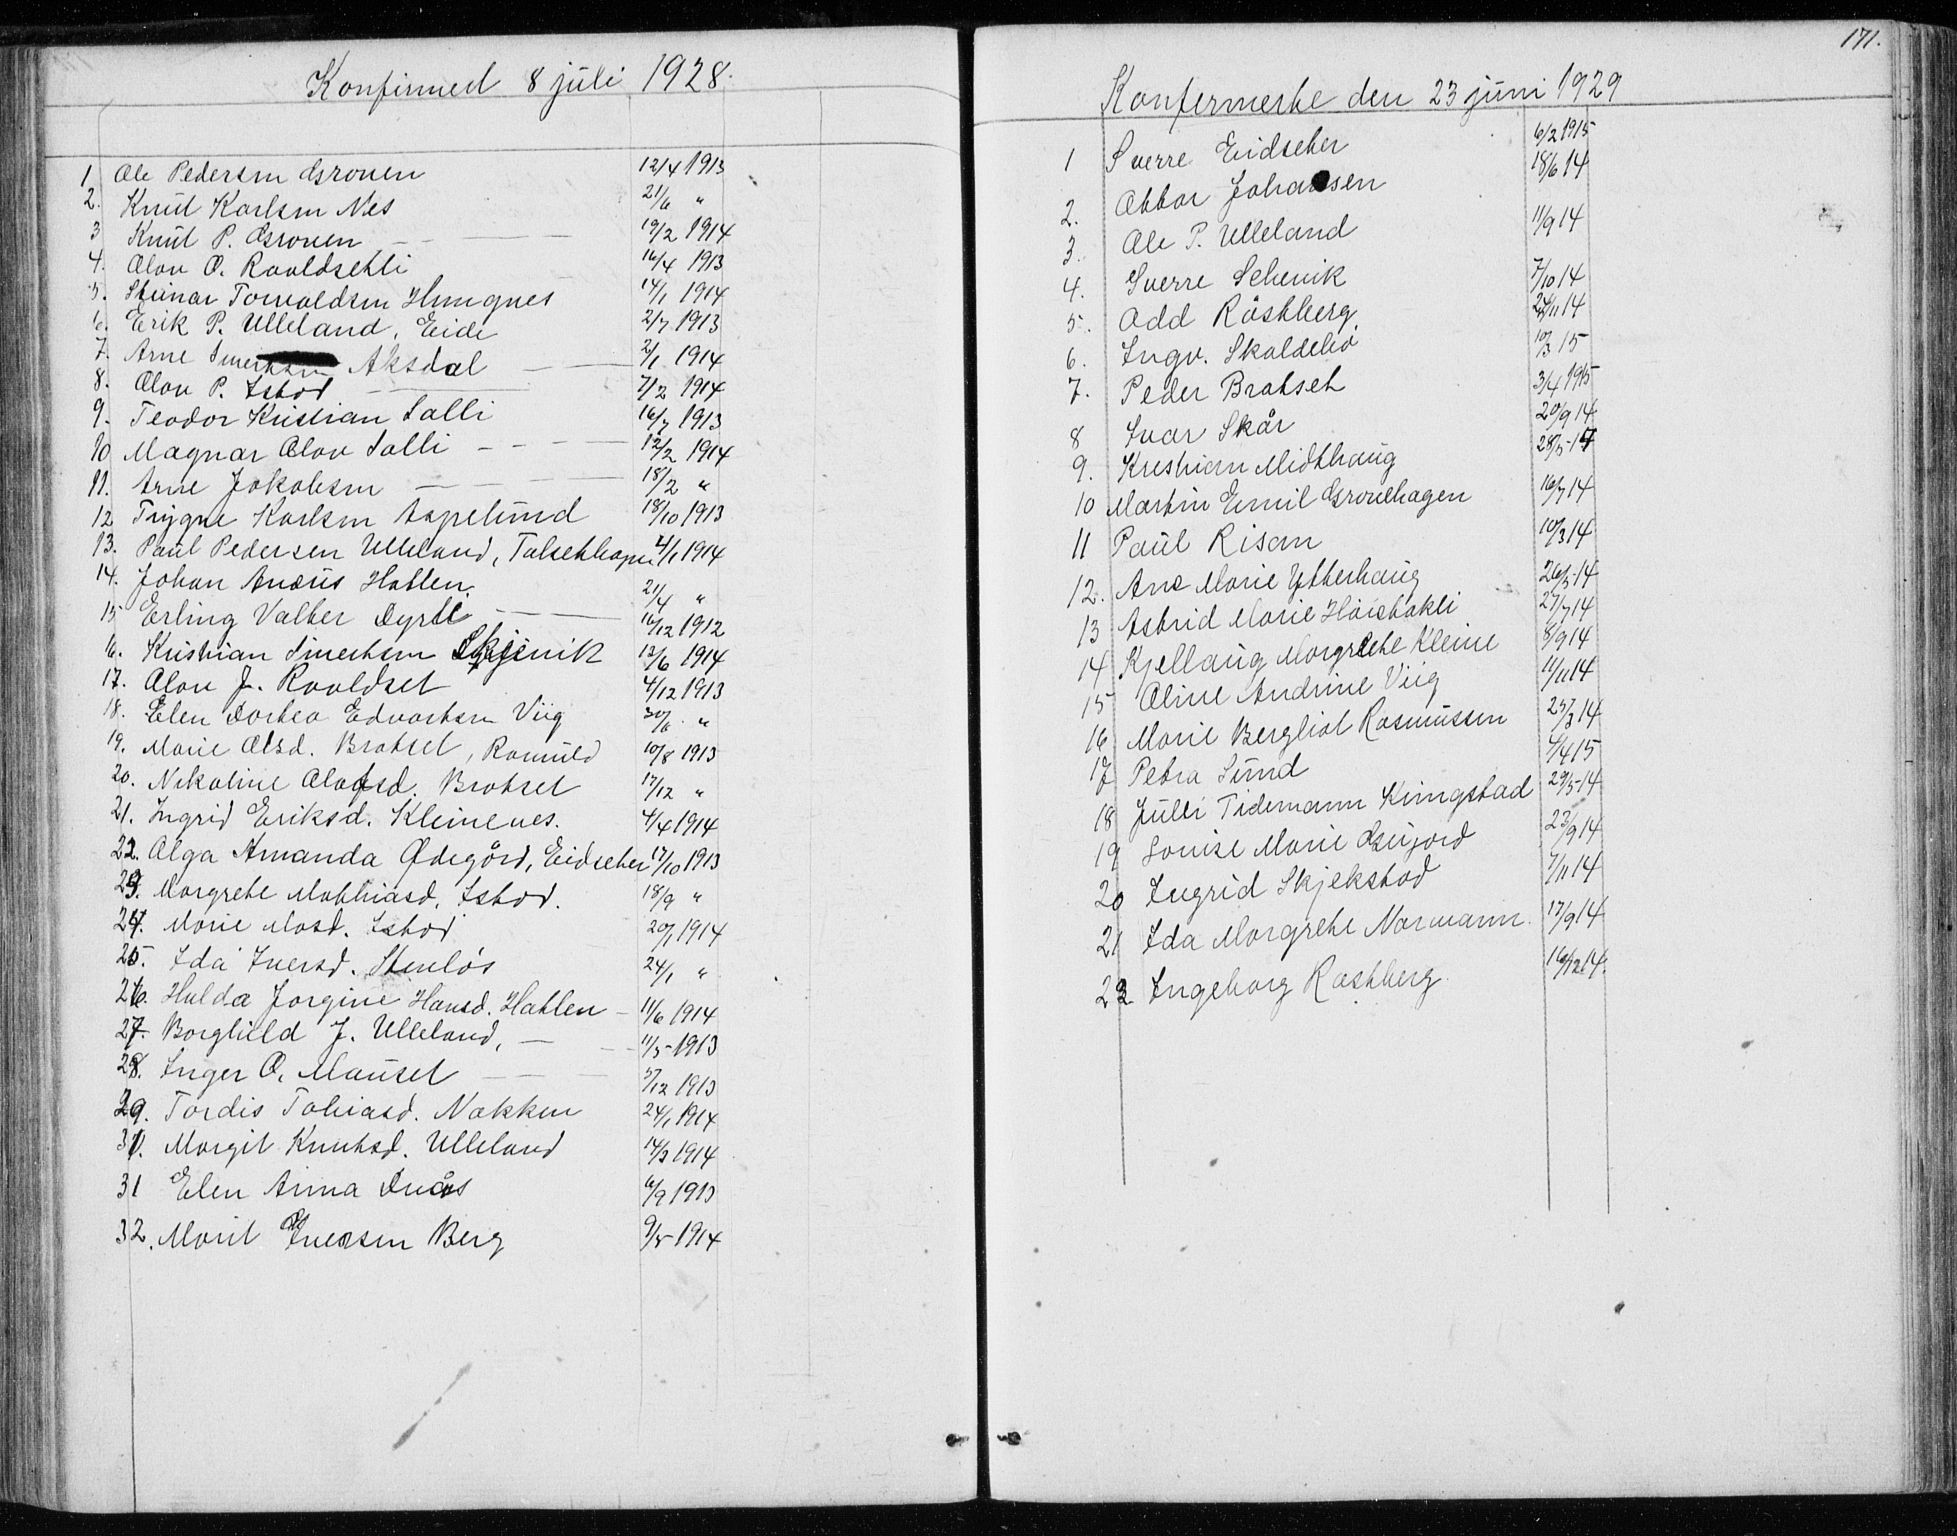 Konfirmed 8 juli 1928.
1 Ole Pedersen Gronen 12/4 1913
2. Knut Karlsen Nes 21/6 "
3 Knut P. Gronen 19/2 1914
4. Olov O. Roaldsetli 16/4 1913
5. Steinar Torvaldsen Hungnes 14/1 1914
6. Erik P. Ulleland, Eide 2/7 1913
7. Arne Sivertsen Aksdal 2/1 1914
8. Olov P. Istad 7/2 1914
9. Teodor Kristian Talli 16/7 1913
10 Magnar Olov Talli 12/2 1914
11. Arne Jakobsen 18/2 "
12 Trygve Karlsen Aspelund 18/10 1913
13. Paul Pedersen Ulleland, Talsethagen 2/1 1914
14. Johan Aneus Hatlen 21/4 "
15 Erling Valter Dyrli 16/12 1912
16. Kristian Sivertsen Skjevik 13/6 1914
17. Olov J. Roaldset 4/12 1913
18. Elen Dortea Edvartsen Viig 30/6 "
19. Marie Olsd. Bratset, Romuld 10/8 1913
20. Nikoline Olafsd. Bratset 17/12 "
21. Ingrid Eriksd. Kleivenes. 4/4 1914
22. Olga Amanda Ødegård, Eidseter 17/10 1913
23. Margrete Mathiasd. Istad. 18/9 "
24. Marie Masd. Istad 20/1 1914
25. Ida Iversd. Stenløs 24/1 "
26. Hulda Jorgine Hansd. Hatlen 11/6 1914
27. Borghild J. Ulleland, 11/5 1913
28. Inger O. Mauset 5/12 1913
29. Tordis Tobiasd. Nakken 24/1 1914
31. Margit Knutsd. Ulleland 14/3 1914
31 Elen Anna Duås 6/9 1913
32. Marit Iversen Berg 9/5 1914
171.
Konfermerte den 23 juni 1929
1 Sverre Eidseter 6/2 1915
2. Abbor Johansen 18/6 14
3. Ole P. Ulleland 11/9 14
4. Sverre Schevik 7/10 14
5. Odd Röstberg 24/11 14
6. Ingv. Skaldebö 10/3 15
7. Peder Bratset 3/4 1915
8 Ivar Skår 20/9 14
9. Kristian Midthaug 28/5-14
10 Martin Emil Gronehagen 16/7 14
11 Paul Risan 10/3 14
12. Ane Marie Ytterhaug 26/5-14
13 Astrid Marie Høistakli 27/7 14
14 Kjellaug Margrete Kleive 8/9 14
15 Oline Andrine Viig 11/11 14
16 Marie Bergliot Rasmussen 23/3 14
17 Petra Sund 4/4 15
18 Julli Tidemann Kringstad 29/5-14
19 Lovise Marie Gujord 23/9 14
20 Ingrid Skjekstad 7/11 14
21 Ida Margrete Normann. 17/9 14
22 Ingeborg Rostberg 16/12 14.